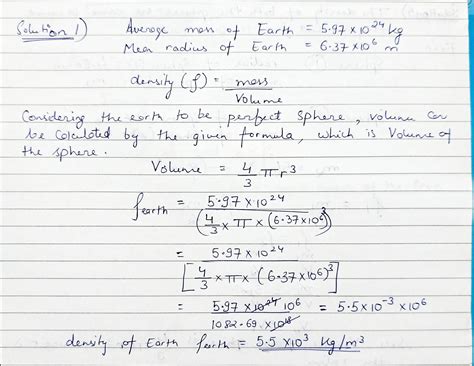 Solution 1) Average mass of Earth = 5.97 x 10^24 kg
Mean radius of Earth = 6.37 x 10^6 m
density (ρ) = mass / Volume
Considering the earth to be perfect sphere, volume can
be calculated by the given formula, which is Volume of
the sphere.
Volume = 4/3 π r^3
ρearth = 5.97 x 10^24 / (4/3 x π x (6.37 x 10^6)^3)
= 5.97 x 10^24 / [4/3 x π x (6.37 x 10^6)^3]
= 5.97 x 10^24 10^6 / 1082.69 x 10^18 = 5.5 x 10^-3 x 10^6
density of Earth ρearth = 5.5 x 10^3 kg/m^3